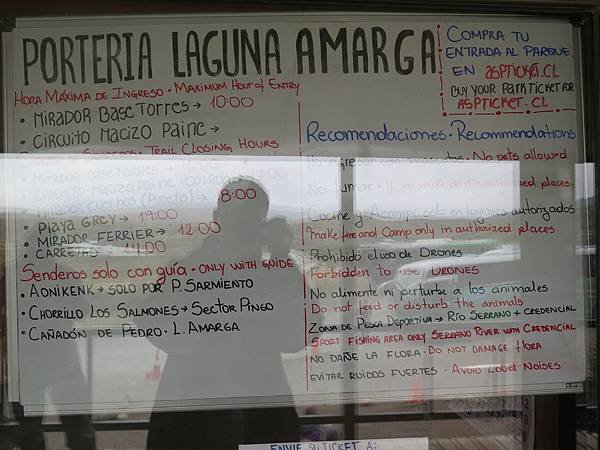 PORTERIA LAGUNA AMARGA
HORA MÁXIMA DE INGRESO • MAXIMUM HOUR OF ENTRY
• MIRADOR BASE TORRES → 10:00
• CIRCUITO MACIZO PAINE →
SENDEROS • TRAIL CLOSING HOURS
• MIRADOR BASE TORRES →
• CIRCUITO MACIZO PAINE
• MIRADOR CUERNOS (PUDETO) → 18:00
• PLAYA GREY → 19:00
• MIRADOR FERRIER → 12:00
• CARRETAS →
SENDEROS SOLO CON GUÍA • ONLY WITH GUIDE
• AONIKENK → SOLO POR P. SARMIENTO
• CHORRILLO LOS SALMONES → SECTOR PINGO
• CAÑADÓN DE PEDRO • L. AMARGA
COMPRA TU
ENTRADA AL PARQUE
EN ASPTICKET.CL
BUY YOUR PARK TICKET FOR
ASPTICKET.CL
RECOMENDACIONES • RECOMMENDATIONS
No ingresar con mascotas • No pets allowed
No fumar • If you smoke, do it in authorized places.
Cocine y Acampe solo en lugares autorizados
Make fire and Camp only in authorized places.
Prohibido el uso de DRONES
Forbidden to use DRONES
No alimente ni perturbe a los animales
Do not feed or disturb the animals
ZONA DE PESCA DEPORTIVA → RÍO SERRANO + CREDENCIAL
SPORT FISHING AREA ONLY SERRANO RIVER WITH CREDENCIAL
NO DAÑE LA FLORA • DO NOT DAMAGE FLORA
EVITAR RUIDOS FUERTES • AVOID LOUD NOISES
ENVIE SU TICKET A: